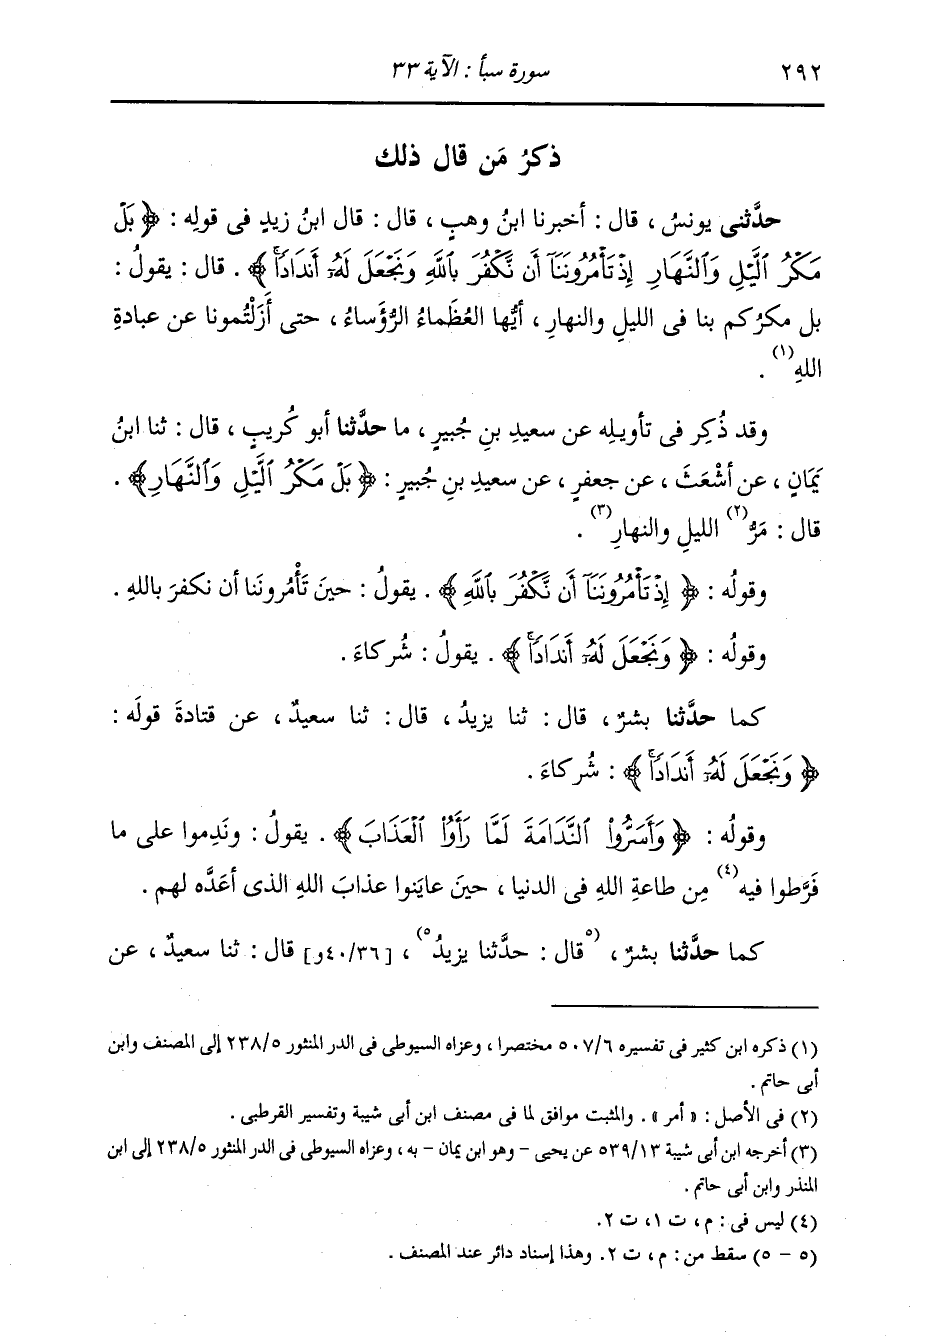 ٢٩٢
سورة سبأ : الآية ٣٣
ذكرُ مَن قال ذلك
حدَّثنى يونسُ ، قال : أخبرنا ابنُ وهبٍ ، قال : قال ابنُ زيدٍ فى قولِه : ﴿ بَلْ
مَكْرُ ٱلَّيْلِ وَٱلنَّهَارِ إِذْ تَأْمُرُونَنَآ أَن نَّكْفُرَ بِٱللَّهِ وَنَجْعَلَ لَهُۥٓ أَندَادًاۚ ﴾ . قال : يقولُ :
بل مكرُكم بنا فى الليلِ والنهارِ ، أيُّها العُظَماءُ الرُّؤَساءُ ، حتى أَزَلْتُمونا عن عبادةِ
اللهِ(١) .
وقد ذُكِر فى تأويلِه عن سعيدِ بنِ جُبيرٍ ، ما حدَّثنا أبو كُريبٍ ، قال : ثنا ابنُ
يَمَانٍ ، عن أشْعَثَ ، عن جعفرٍ ، عن سعيدِ بنِ جُبيرٍ : ﴿ بَلْ مَكْرُ ٱلَّيْلِ وَٱلنَّهَارِ ﴾ .
قال : مَرُّ(٢) الليلِ والنهارِ(٣) .
وقولُه : ﴿ إِذْ تَأْمُرُونَنَآ أَن نَّكْفُرَ بِٱللَّهِ ﴾ . يقولُ : حينَ تَأْمُرونَنا أن نكفرَ باللهِ .
وقولُه : ﴿ وَنَجْعَلَ لَهُۥٓ أَندَادًاۚ ﴾ . يقولُ : شُركاءَ .
كما حدَّثنا بشرٌ ، قال : ثنا يزيدُ ، قال : ثنا سعيدٌ ، عن قتادةَ قولَه :
﴿ وَنَجْعَلَ لَهُۥٓ أَندَادًاۚ ﴾ : شُركاءَ .
وقولُه : ﴿ وَأَسَرُّوا۟ ٱلنَّدَامَةَ لَمَّا رَأَوُا۟ ٱلْعَذَابَ ﴾ . يقولُ : ونَدِموا على ما
فَرَّطوا فيه(٤) مِن طاعةِ اللهِ فى الدنيا ، حينَ عايَنوا عذابَ اللهِ الذى أعَدَّه لهم .
كما حدَّثنا بشرٌ ، (٥قال : حدَّثنا يزيدُ٥) ، [٤٠/٣٦و] قال : ثنا سعيدٌ ، عن
(١) ذكره ابن كثير فى تفسيره ٥٠٧/٦ مختصرا ، وعزاه السيوطى فى الدر المنثور ٢٣٨/٥ إلى المصنف وابن
أبى حاتم .
(٢) فى الأصل : « أمر » . والمثبت موافق لما فى مصنف ابن أبى شيبة وتفسير القرطبى .
(٣) أخرجه ابن أبى شيبة ٥٣٩/١٣ عن يحيى - وهو ابن يمان - به ، وعزاه السيوطى فى الدر المنثور ٢٣٨/٥ إلى ابن
المنذر وابن أبى حاتم .
(٤) ليس فى : م ، ت ١ ، ت ٢ .
(٥ - ٥) سقط من : م ، ت ٢ . وهذا إسناد دائر عند المصنف .